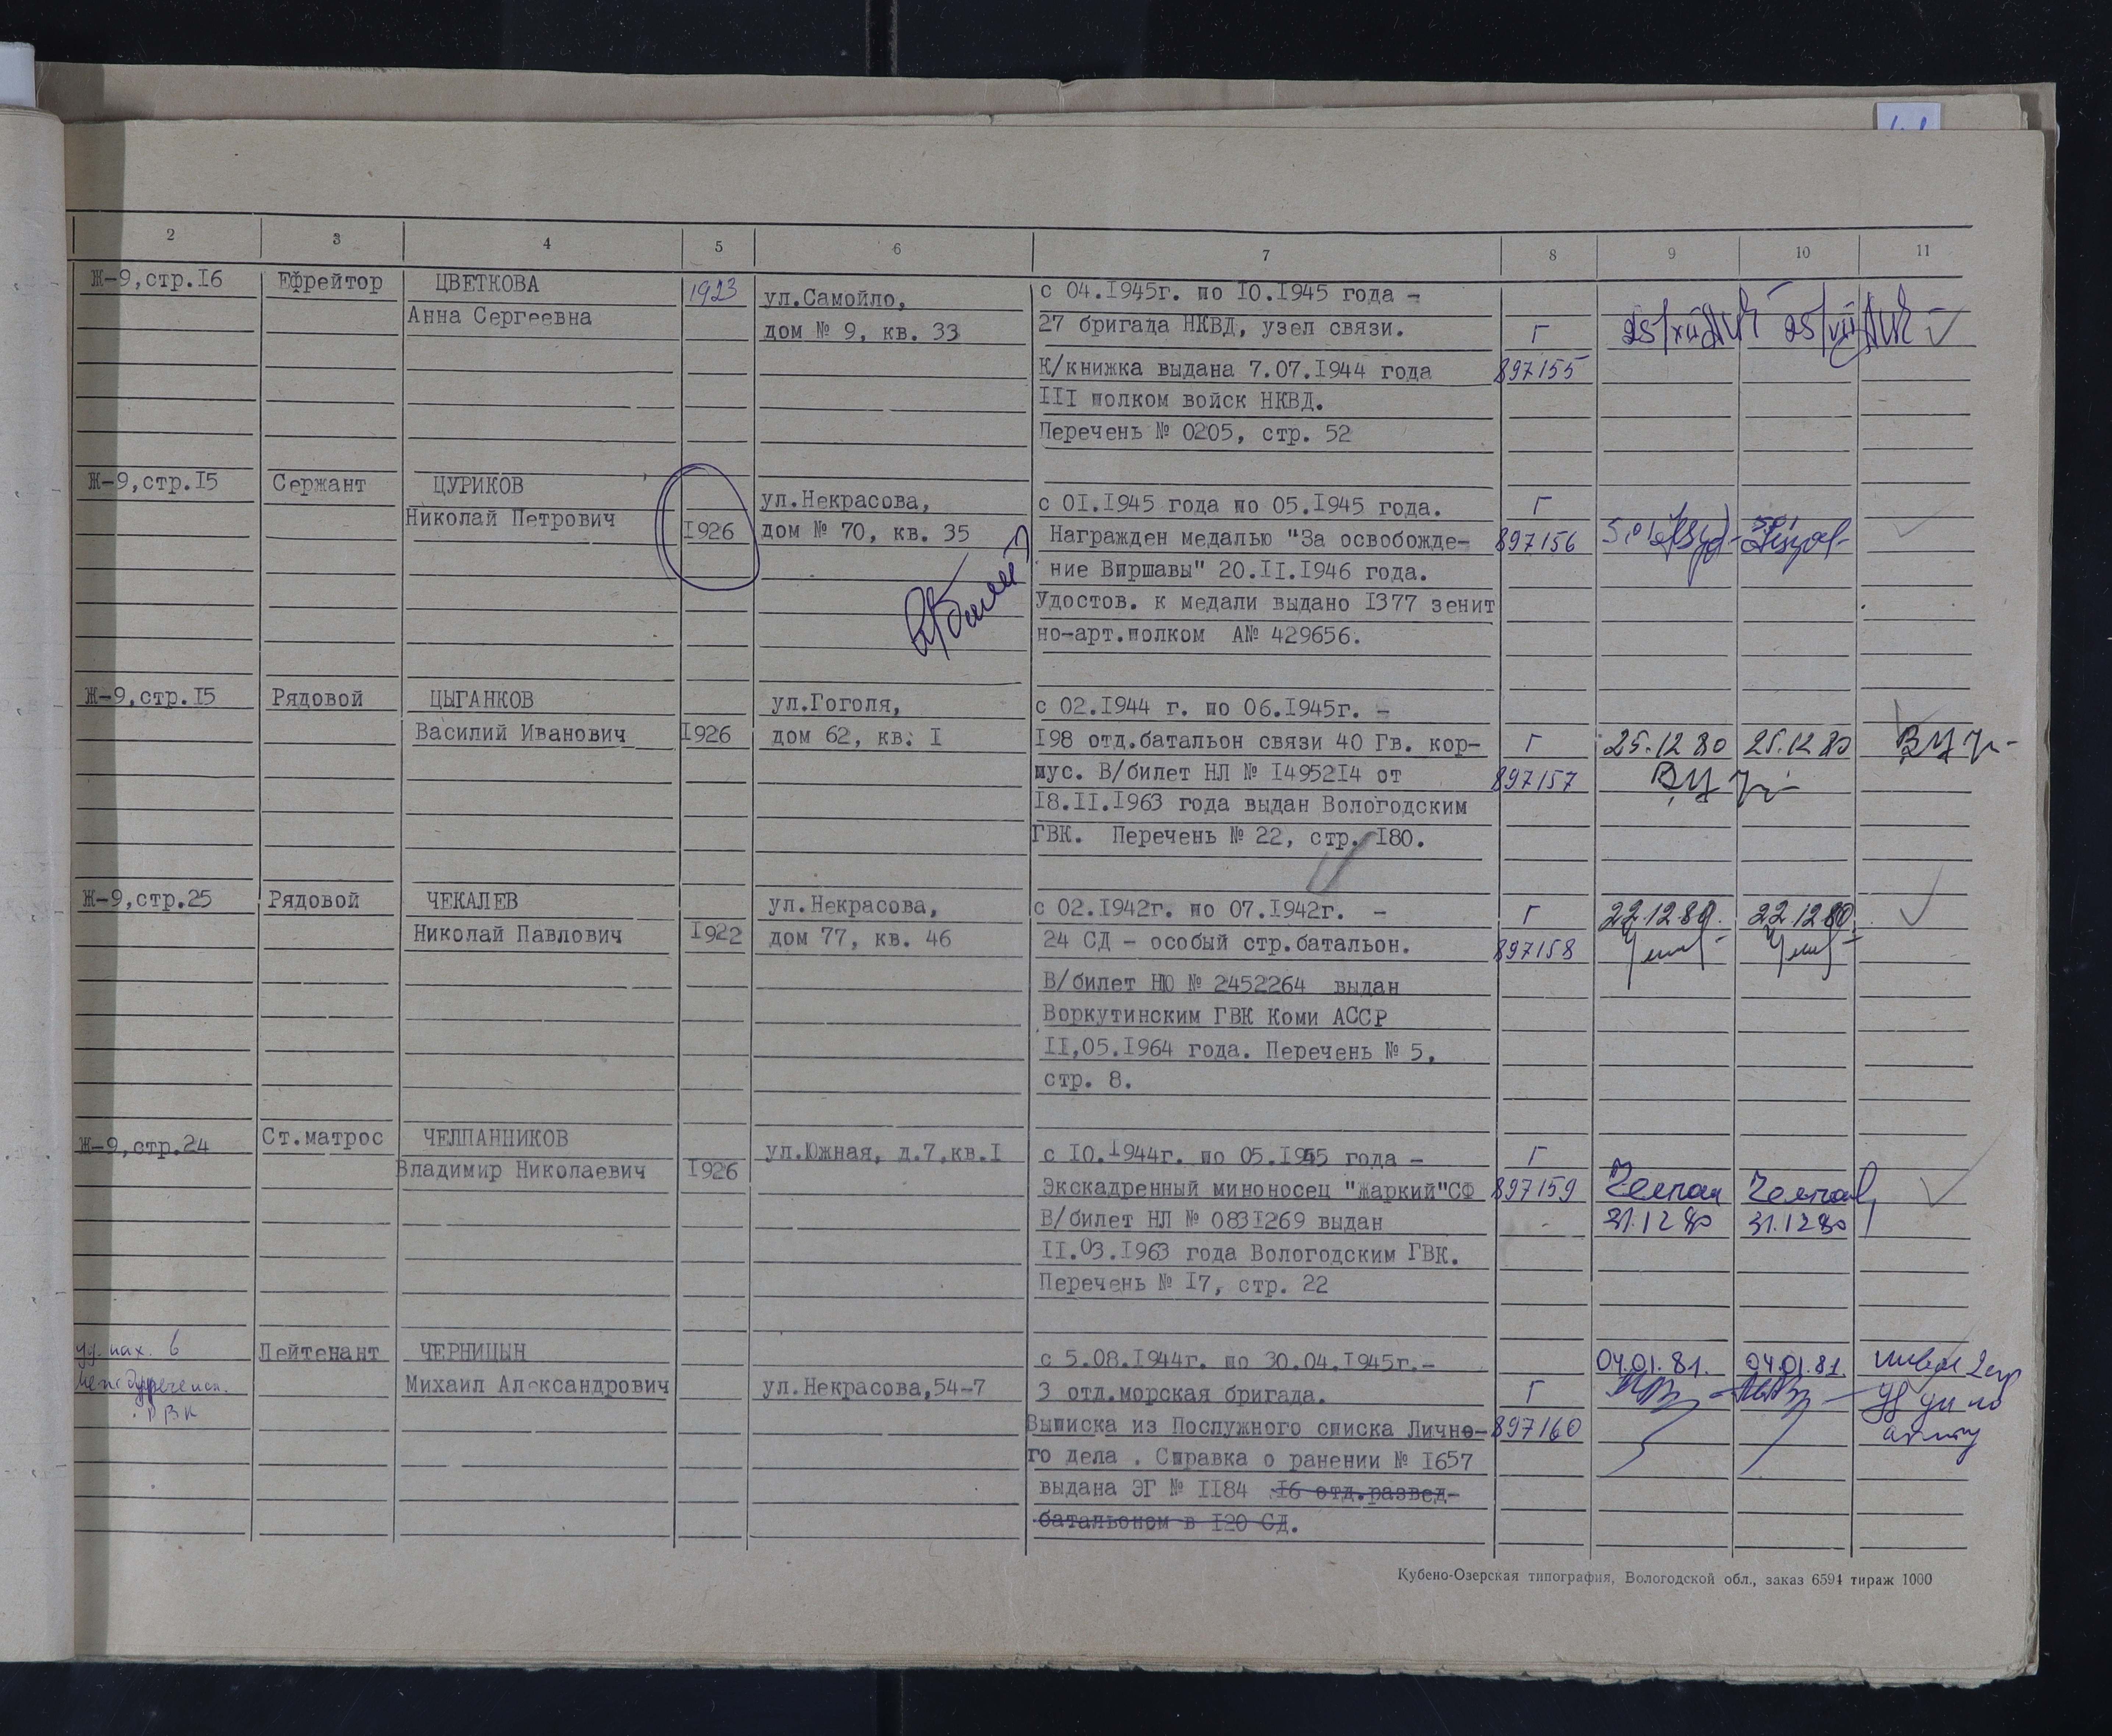 2 3 4 5 6 7 8 9 10 11
Ж-9,стр.I6 Ефрейтор ЦВЕТКОВА 1923 ул.Самойло, с 04.I945г. по I0.I945 года -
Анна Сергеевна дом № 9, кв. 33 27 бригада НКВД, узел связи. Г
К/книжка выдана 7.07.I944 года 897155
III полком войск НКВД.
Перечень № 0205, стр. 52
Ж-9,стр.I5 Сержант ЦУРИКОВ ул.Некрасова, с 0I.I945 года по 05.I945 года. Г
Николай Петрович I926 дом № 70, кв. 35 Награжден медалью "За освобожде- 897156
ние Виршавы" 20.II.I946 года.
Удостов. к медали выдано I377 зенит
но-арт.полком А№ 429656.
Ж-9,стр.I5 Рядовой ЦЫГАНКОВ ул.Гоголя, с 02.I944 г. по 06.I945г. -
Василий Иванович I926 дом 62, кв. I I98 отд.батальон связи 40 Гв. кор- Г 25.12 80 25.12 80
пус. В/билет НЛ № I4952I4 от 897157
I8.II.I963 года выдан Вологодским
ГВК. Перечень № 22, стр. I80.
Ж-9,стр.25 Рядовой ЧЕКАЛЕВ ул.Некрасова, с 02.I942г. по 07.I942г. - Г 22.12.80. 22.12.80.
Николай Павлович I922 дом 77, кв. 46 24 СД - особый стр.батальон. 897158
В/билет НЮ № 2452264 выдан
Воркутинским ГВК Коми АССР
II,05.I964 года. Перечень № 5,
стр. 8.
Ж-9,стр.24 Ст.матрос ЧЕЛПАННИКОВ ул.Южная, д.7,кв.I с I0.I944г. по 05.I945 года - Г
Владимир Николаевич I926 Экскадренный миноносец "Жаркий"СФ 897159
В/билет НЛ № 083I269 выдан 31.12 80 31.12 80
II.03.I963 года Вологодским ГВК.
Перечень № I7, стр. 22
Лейтенант ЧЕРНИЦЫН с 5.08.I944г. по 30.04.I945г.- 04.01.81. 04.01.81
Михаил Александрович ул.Некрасова,54-7 3 отд.морская бригада. Г
РВК Выписка из Послужного списка Лично- 897160
го дела . Справка о ранении № I657
выдана ЭГ № II84 I6 отд.развед-
батальоном в I20 СД.
Кубено-Озерская типография, Вологодской обл., заказ 6594 тираж 1000